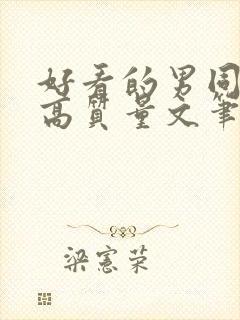 好看的男同
高质量文笔
梁宪荣